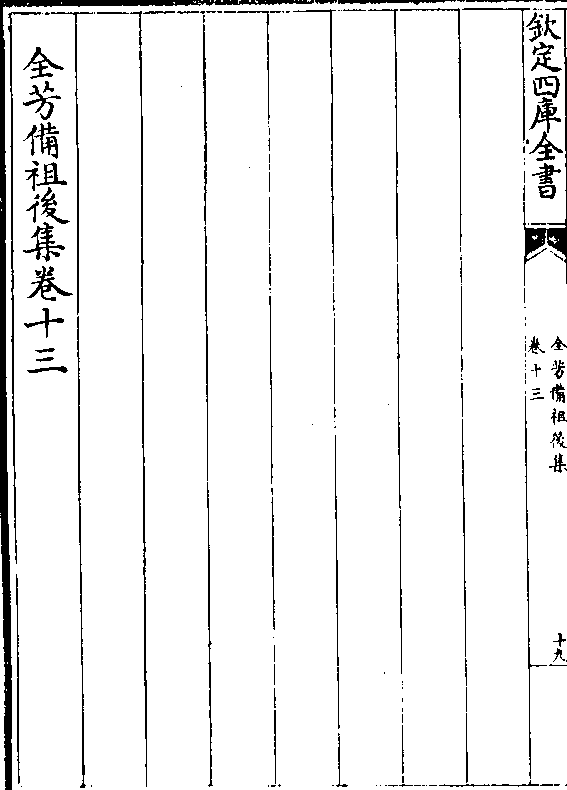 欽定四庫全書
全芳備祖後集
卷十三
十九
全芳備祖後集卷十三